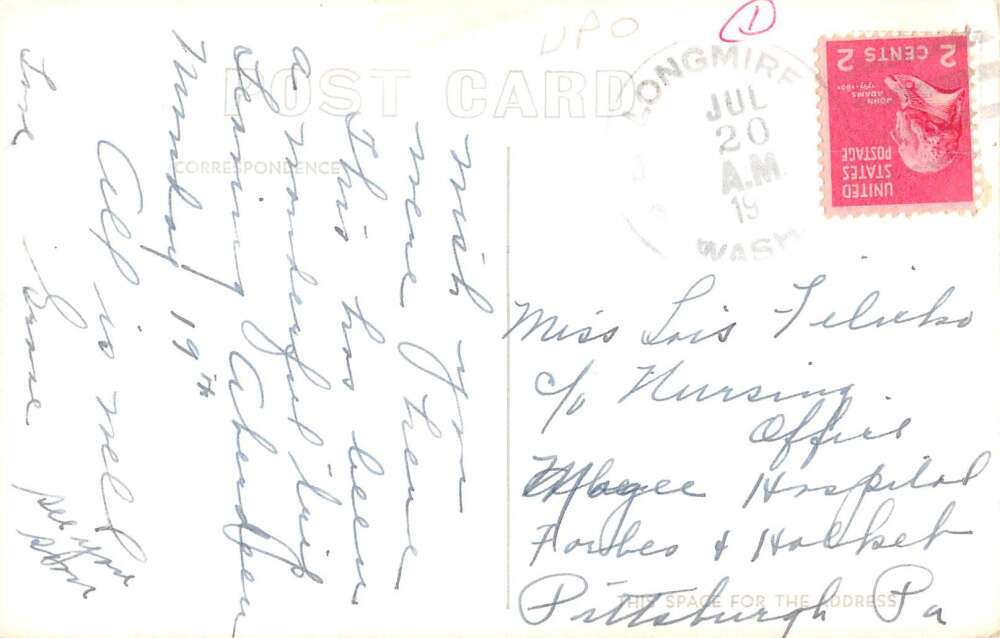 POST CARD
CORRESPONDENCE
Wish you
were here
This has been
a wonderful trip
Leaving Aberdeen
Monday 19th
All is well
Love
see you
soon
DPO
1
LONGMIRE
JUL
20
A.M
19
WASH.
UNITED
STATES
POSTAGE
JOHN
ADAMS
1797-1801
2 CENTS 2
Miss Lois
c/o Nursing
Office
Magee Hospital
Forbes & Halket
Pittsburgh Pa
THIS SPACE FOR THE ADDRESS